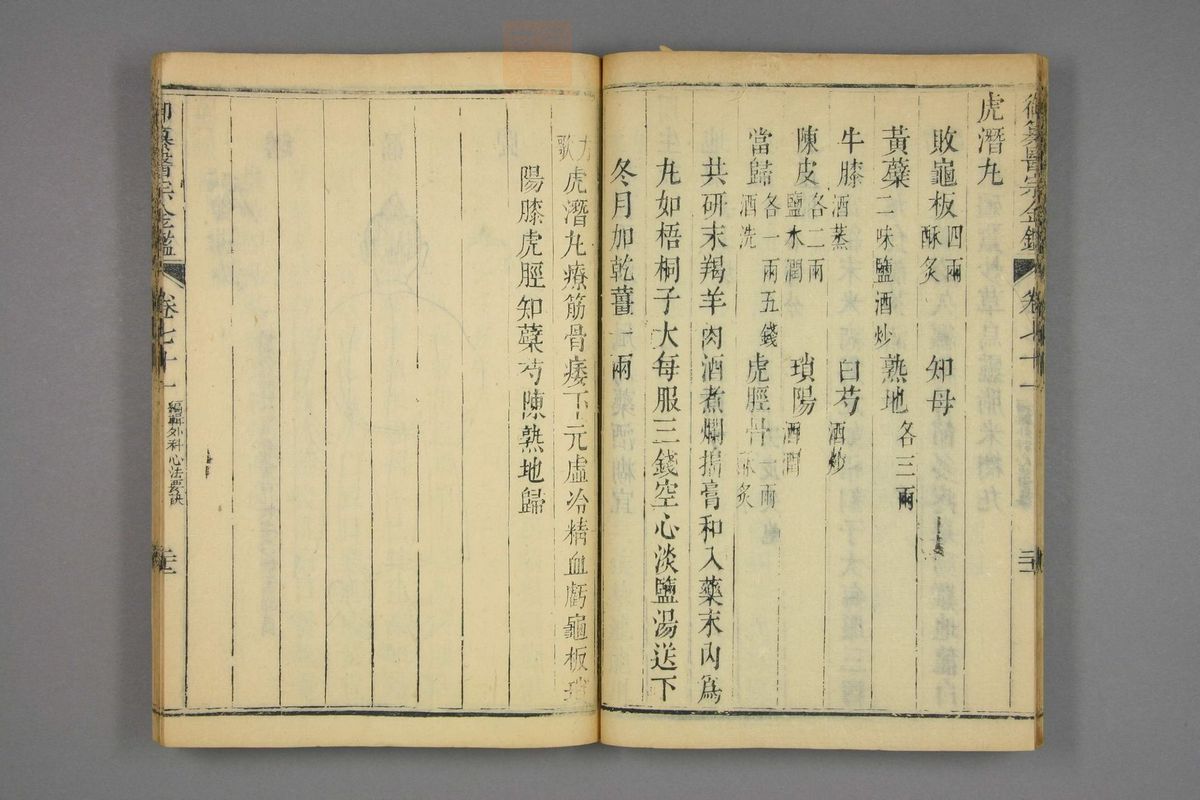 御纂醫宗金鑑 卷七十一
虎潛丸
敗龜板四兩酥炙 知母
黃蘗二味鹽酒炒 熟地各三兩
牛膝酒蒸 白芍酒炒
陳皮各二兩鹽水潤 瑣陽酒潤
當歸各一兩五錢酒洗 虎脛骨一兩酥炙
共研末羯羊肉酒煮爛搗膏和入藥末內為
丸如梧桐子大每服三錢空心淡鹽湯送下
冬月加乾薑一兩
方歌 虎潛丸療筋骨痿下元虛冷精血虧龜板瑣
陽膝虎脛知蘗芍陳熟地歸
御纂醫宗金鑑 卷七十一 編輯外科心法要訣